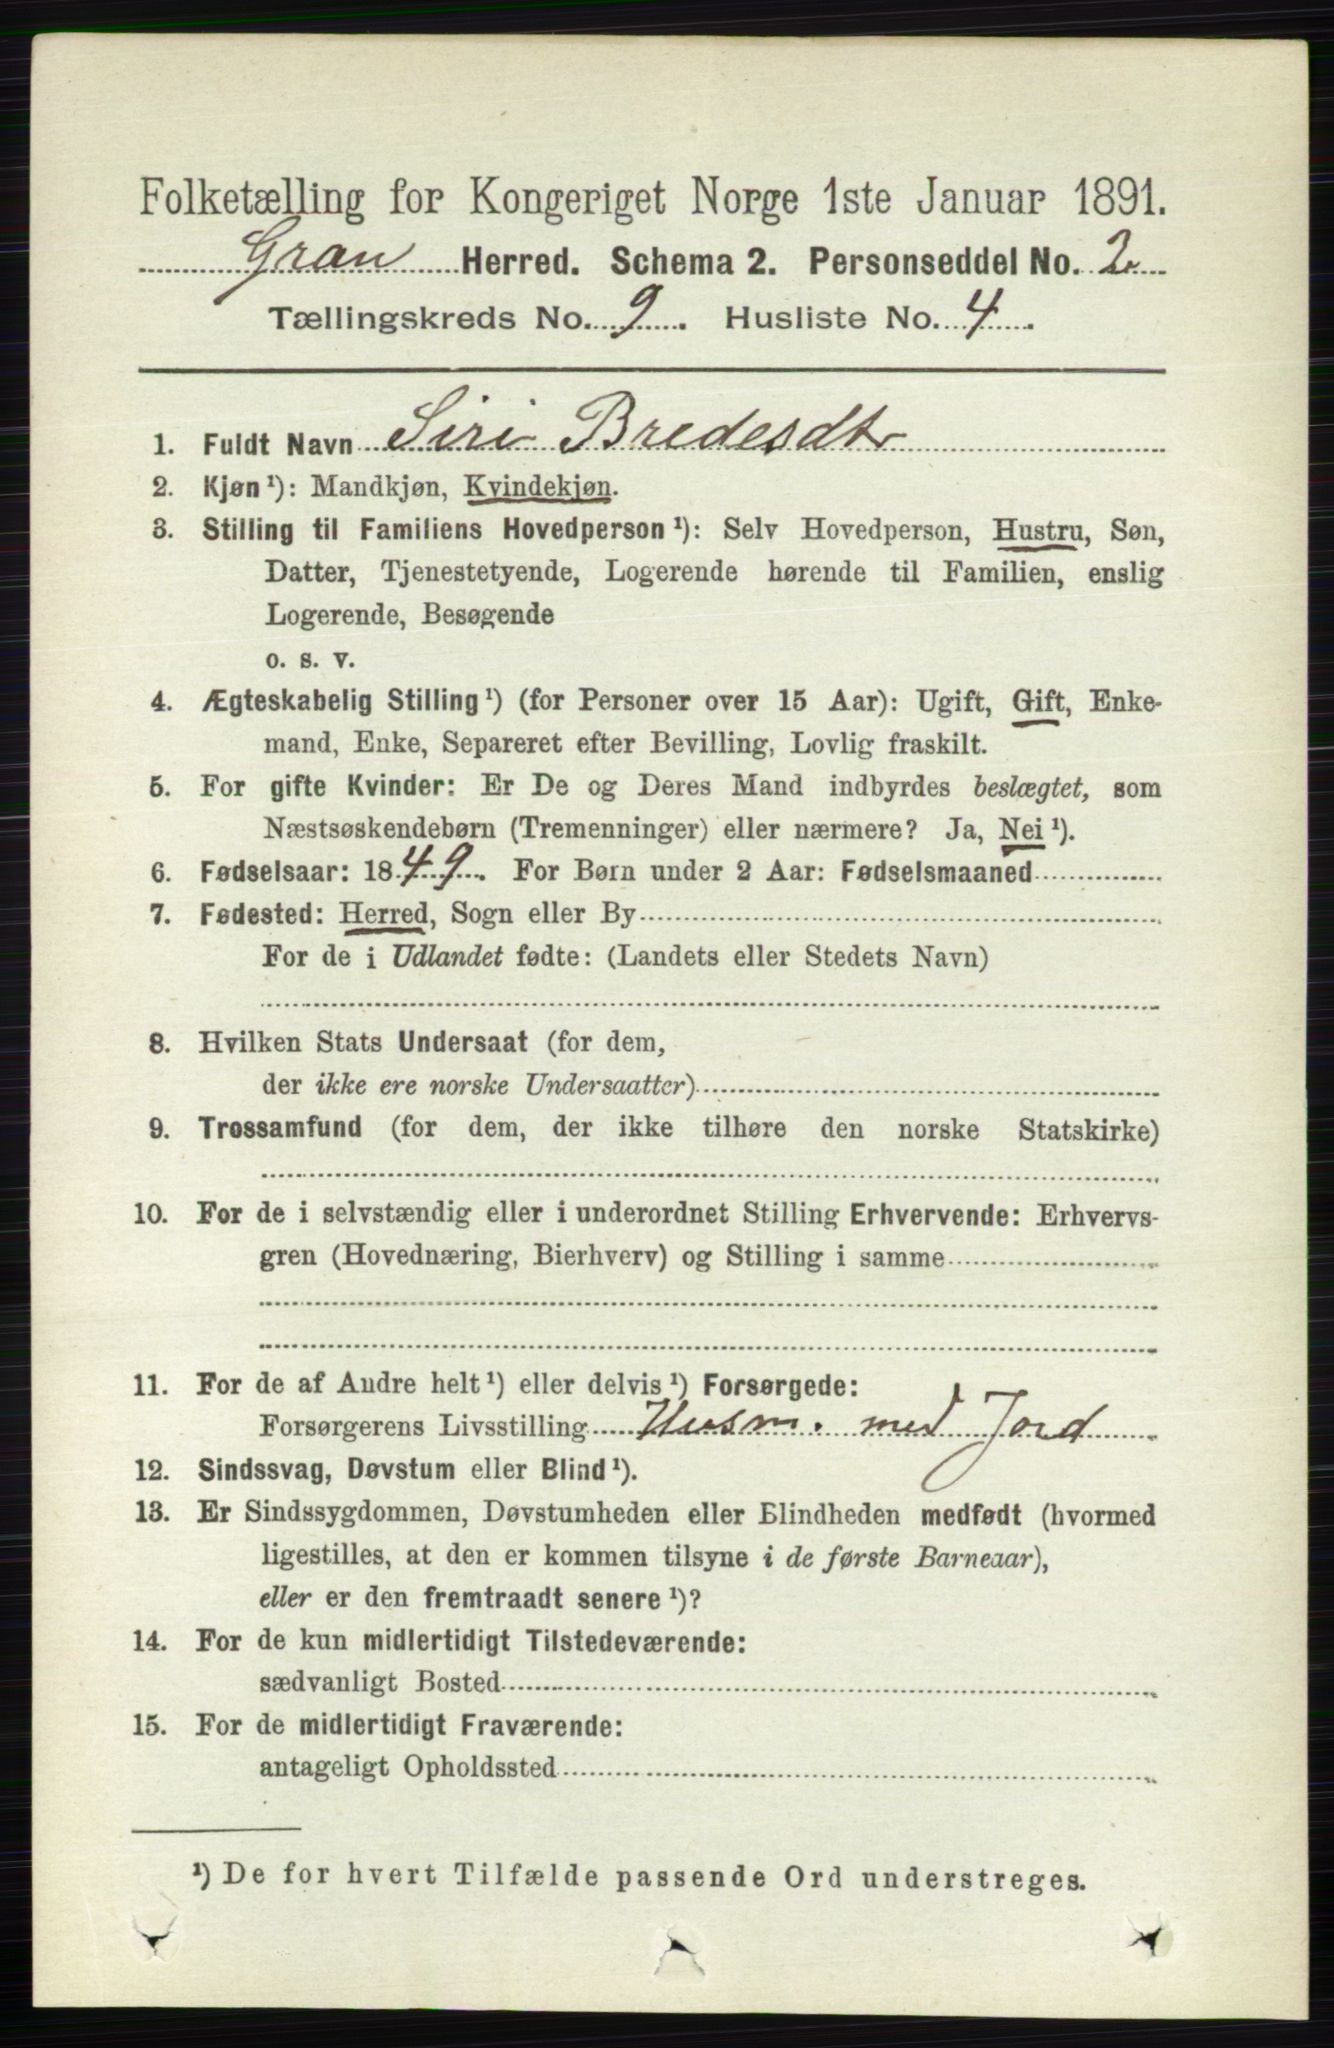 Folketælling for Kongeriget Norge 1ste Januar 1891.
Gran Herred. Schema 2. Personseddel No. 2
Tællingskreds No. 9. Husliste No. 4.
1. Fuldt Navn Siri Bredesdtr
2. Kjøn¹): Mandkjøn, Kvindekjøn.
3. Stilling til Familiens Hovedperson¹): Selv Hovedperson, Hustru, Søn,
Datter, Tjenestetyende, Logerende hørende til Familien, enslig
Logerende, Besøgende
o. s. v.
4. Ægteskabelig Stilling¹) (for Personer over 15 Aar): Ugift, Gift, Enke-
mand, Enke, Separeret efter Bevilling, Lovlig fraskilt.
5. For gifte Kvinder: Er De og Deres Mand indbyrdes beslægtet, som
Næstsøskendebørn (Tremenninger) eller nærmere? Ja, Nei¹).
6. Fødselsaar: 1849. For Børn under 2 Aar: Fødselsmaaned
7. Fødested: Herred, Sogn eller By
For de i Udlandet fødte: (Landets eller Stedets Navn)
8. Hvilken Stats Undersaat (for dem,
der ikke ere norske Undersaatter)
9. Trossamfund (for dem, der ikke tilhøre den norske Statskirke)
10. For de i selvstændig eller i underordnet Stilling Erhvervende: Erhvervs-
gren (Hovednæring, Bierhverv) og Stilling i samme
11. For de af Andre helt¹) eller delvis¹) Forsørgede:
Forsørgerens Livsstilling Husm. med Jord
12. Sindssvag, Døvstum eller Blind¹).
13. Er Sindssygdommen, Døvstumheden eller Blindheden medfødt (hvormed
ligestilles, at den er kommen tilsyne i de første Barneaar),
eller er den fremtraadt senere¹)?
14. For de kun midlertidigt Tilstedeværende:
sædvanligt Bosted
15. For de midlertidigt Fraværende:
antageligt Opholdssted
¹) De for hvert Tilfælde passende Ord understreges.